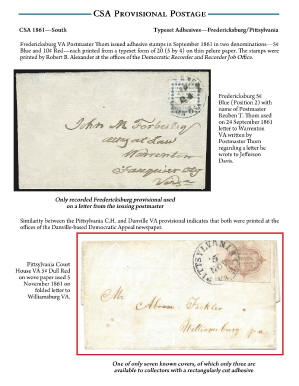 CSA Provisional Postage
CSA 1861—South
Typeset Adhesives—Fredericksburg/Pittsylvania
Fredericksburg VA Postmaster Thom issued adhesive stamps in September 1861 in two denominations—5¢
Blue and 10¢ Red—each printed from a typeset form of 20 (5 by 4) on thin pelure paper. The stamps were
printed by Robert B. Alexander at the offices of the Democratic Recorder and Recorder Job Office.
John M Forbes Esq
Atty at Law
Warrenton
Fauquier Cty
Va
Fredericksburg 5¢
Blue (Position 2) with
name of Postmaster
Reuben T. Thom used
on 24 September 1861
letter to Warrenton
VA written by
Postmaster Thom
regarding a letter he
wrote to Jefferson
Davis.
Only recorded Fredericksburg provisional used
on a letter from the issuing postmaster
Similarity between the Pittsylvania C.H. and Danville VA provisional indicates that both were printed at the
offices of the Danville-based Democratic Appeal newspaper.
Pittsylvania Court
House VA 5¢ Dull Red
on wove paper used 5
November 1861 on
folded letter to
Williamsburg VA.
PITTSYLVANIA
5
NOV
Mr.
Abram
Williamsburg
One of only seven known covers, of which only three are
available to collectors with a rectangularly cut adhesive